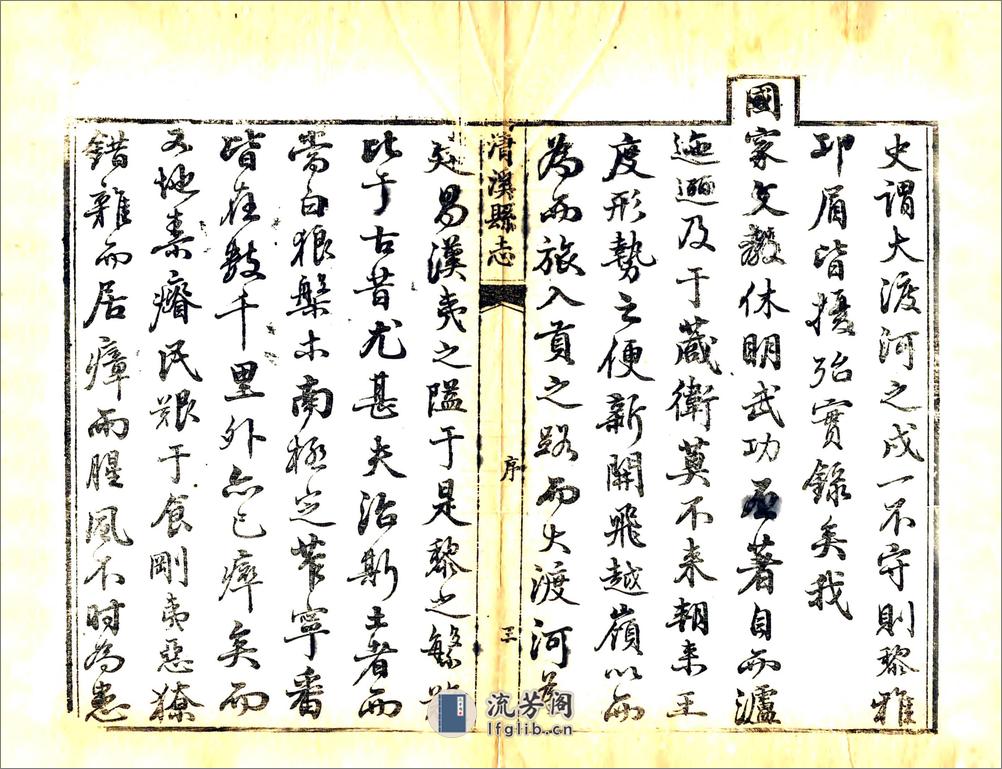 史謂大渡河之戍一不守則黎雅
卭眉皆擾殆實錄矣我
國家文教休明武功丕著自西瀘
迤邐及于藏衛莫不来朝来王
度形勢之便新開飛越嶺以西
為西旅入貢之路而大渡河
清溪縣志
序
三
易漢夷之隘于是黎之
比于古昔尤甚夫治斯土者西
嘗白狼槃木南極定莋寧番
皆在數千里外亦已瘁矣而
又地素瘠民艱于食剛夷惡獠
錯雜而居瘴雨腥風不时為患
流芳阁
lfglib.cn